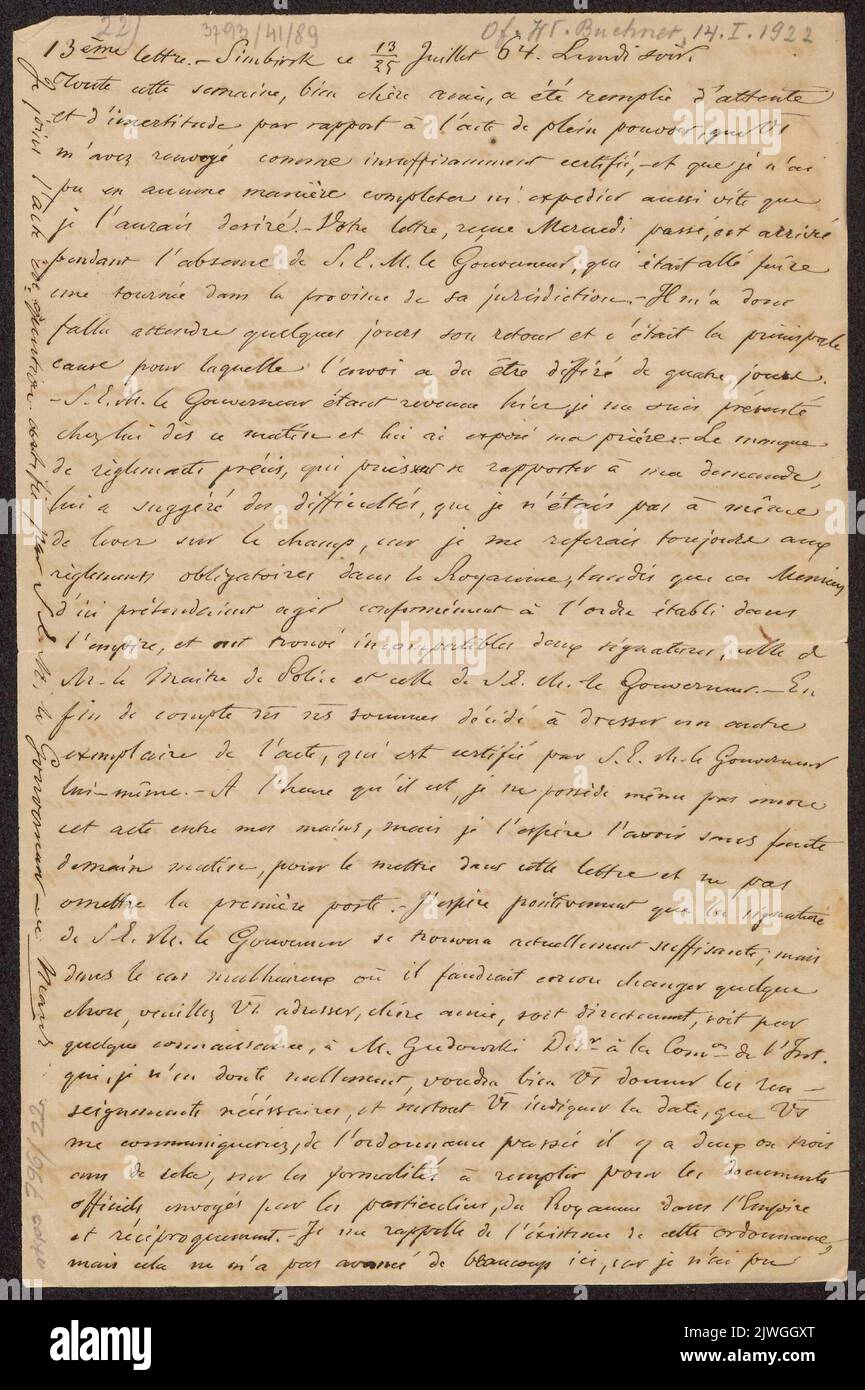 22) 3793/41/89 Of. Wł. Buchner, 14. I. 1922
13ème lettre. – Simbirsk ce 13/25 Juillet 64. Lundi soir.
Toute cette semaine, bien chère amie, a été remplie d'attente
et d'incertitude par rapport à l'acte de plein pouvoir, que Vs
m'avez renvoyé comme insuffisamment certifié, – et que je n'ai
pu en aucune manière completer ni expedier aussi vite que
je l'aurais desiré. – Votre lettre, reçue Mercredi passé, est arrivée
pendant l'absence de S. E. M. le Gouverneur, qui était allé faire
une tournée dans la province de sa juridiction. – Il m'a donc
fallu attendre quelques jours son retour et c'était la principale
cause pour laquelle l'envoi a du être différé de quatre jours.
– S. E. M. le Gouverneur étant revenu hier, je me suis présenté
chez lui dès ce matin et lui ai exposé ma prière. – Le manque
de règlements précis, qui puissent se rapporter à ma demande,
lui a suggéré des difficultés, que je n'étais pas à même
de lever sur le champ, car je me referais toujours aux
règlements obligatoires dans le Royaume, tandis que ces Messieurs
d'ici prétendaient agir conformément à l'ordre établi dans
l'empire, et ont trouvé incompatibles deux signatures, celle de
M. le Maitre de Police et celle de S. E. M. le Gouverneur. – En
fin de compte ns ns sommes décidé à dresser un autre
exemplaire de l'acte, qui est certifié par S. E. M. le Gouverneur
lui-même. – A l'heure qu'il est, je ne possède même pas encore
cet acte entre mes mains, mais je l'espère l'avoir sans faute
demain matin, pour le mettre dans cette lettre et ne pas
omettre la première poste. – J'espère positivement que la signature
de S. E. M. le Gouverneur se trouvera actuellement suffisante; mais
dans le cas malheureux où il faudrait encore changer quelque
chose, veuillez Vs adresser, chère amie, soit directement, soit par
quelque connaissance, à M. Gudowski Dirr à la Comon de l'Inst.
qui, je n'en doute nullement, voudra bien Vs donner les ren–
seignements nécéssaires, et surtout Vs indiquer la date, que Vs
me communiqueriez, de l'ordonnance passée il y a deux ou trois
ans de cela, sur les formalités à remplir pour les documents
officiels envoyés par les particuliers, du Royaume dans l'Empire
et réciproquement. – Je me rappelle de l'éxistence de cette ordonnance,
mais cela ne m'a pas avancé de beaucoup ici, car je n'ai pu
Je joins l'acte en question certifié par S. E. M. le Gouverneur – ce Mardi
alamy
Image ID: 2JWGGXT
www.alamy.com